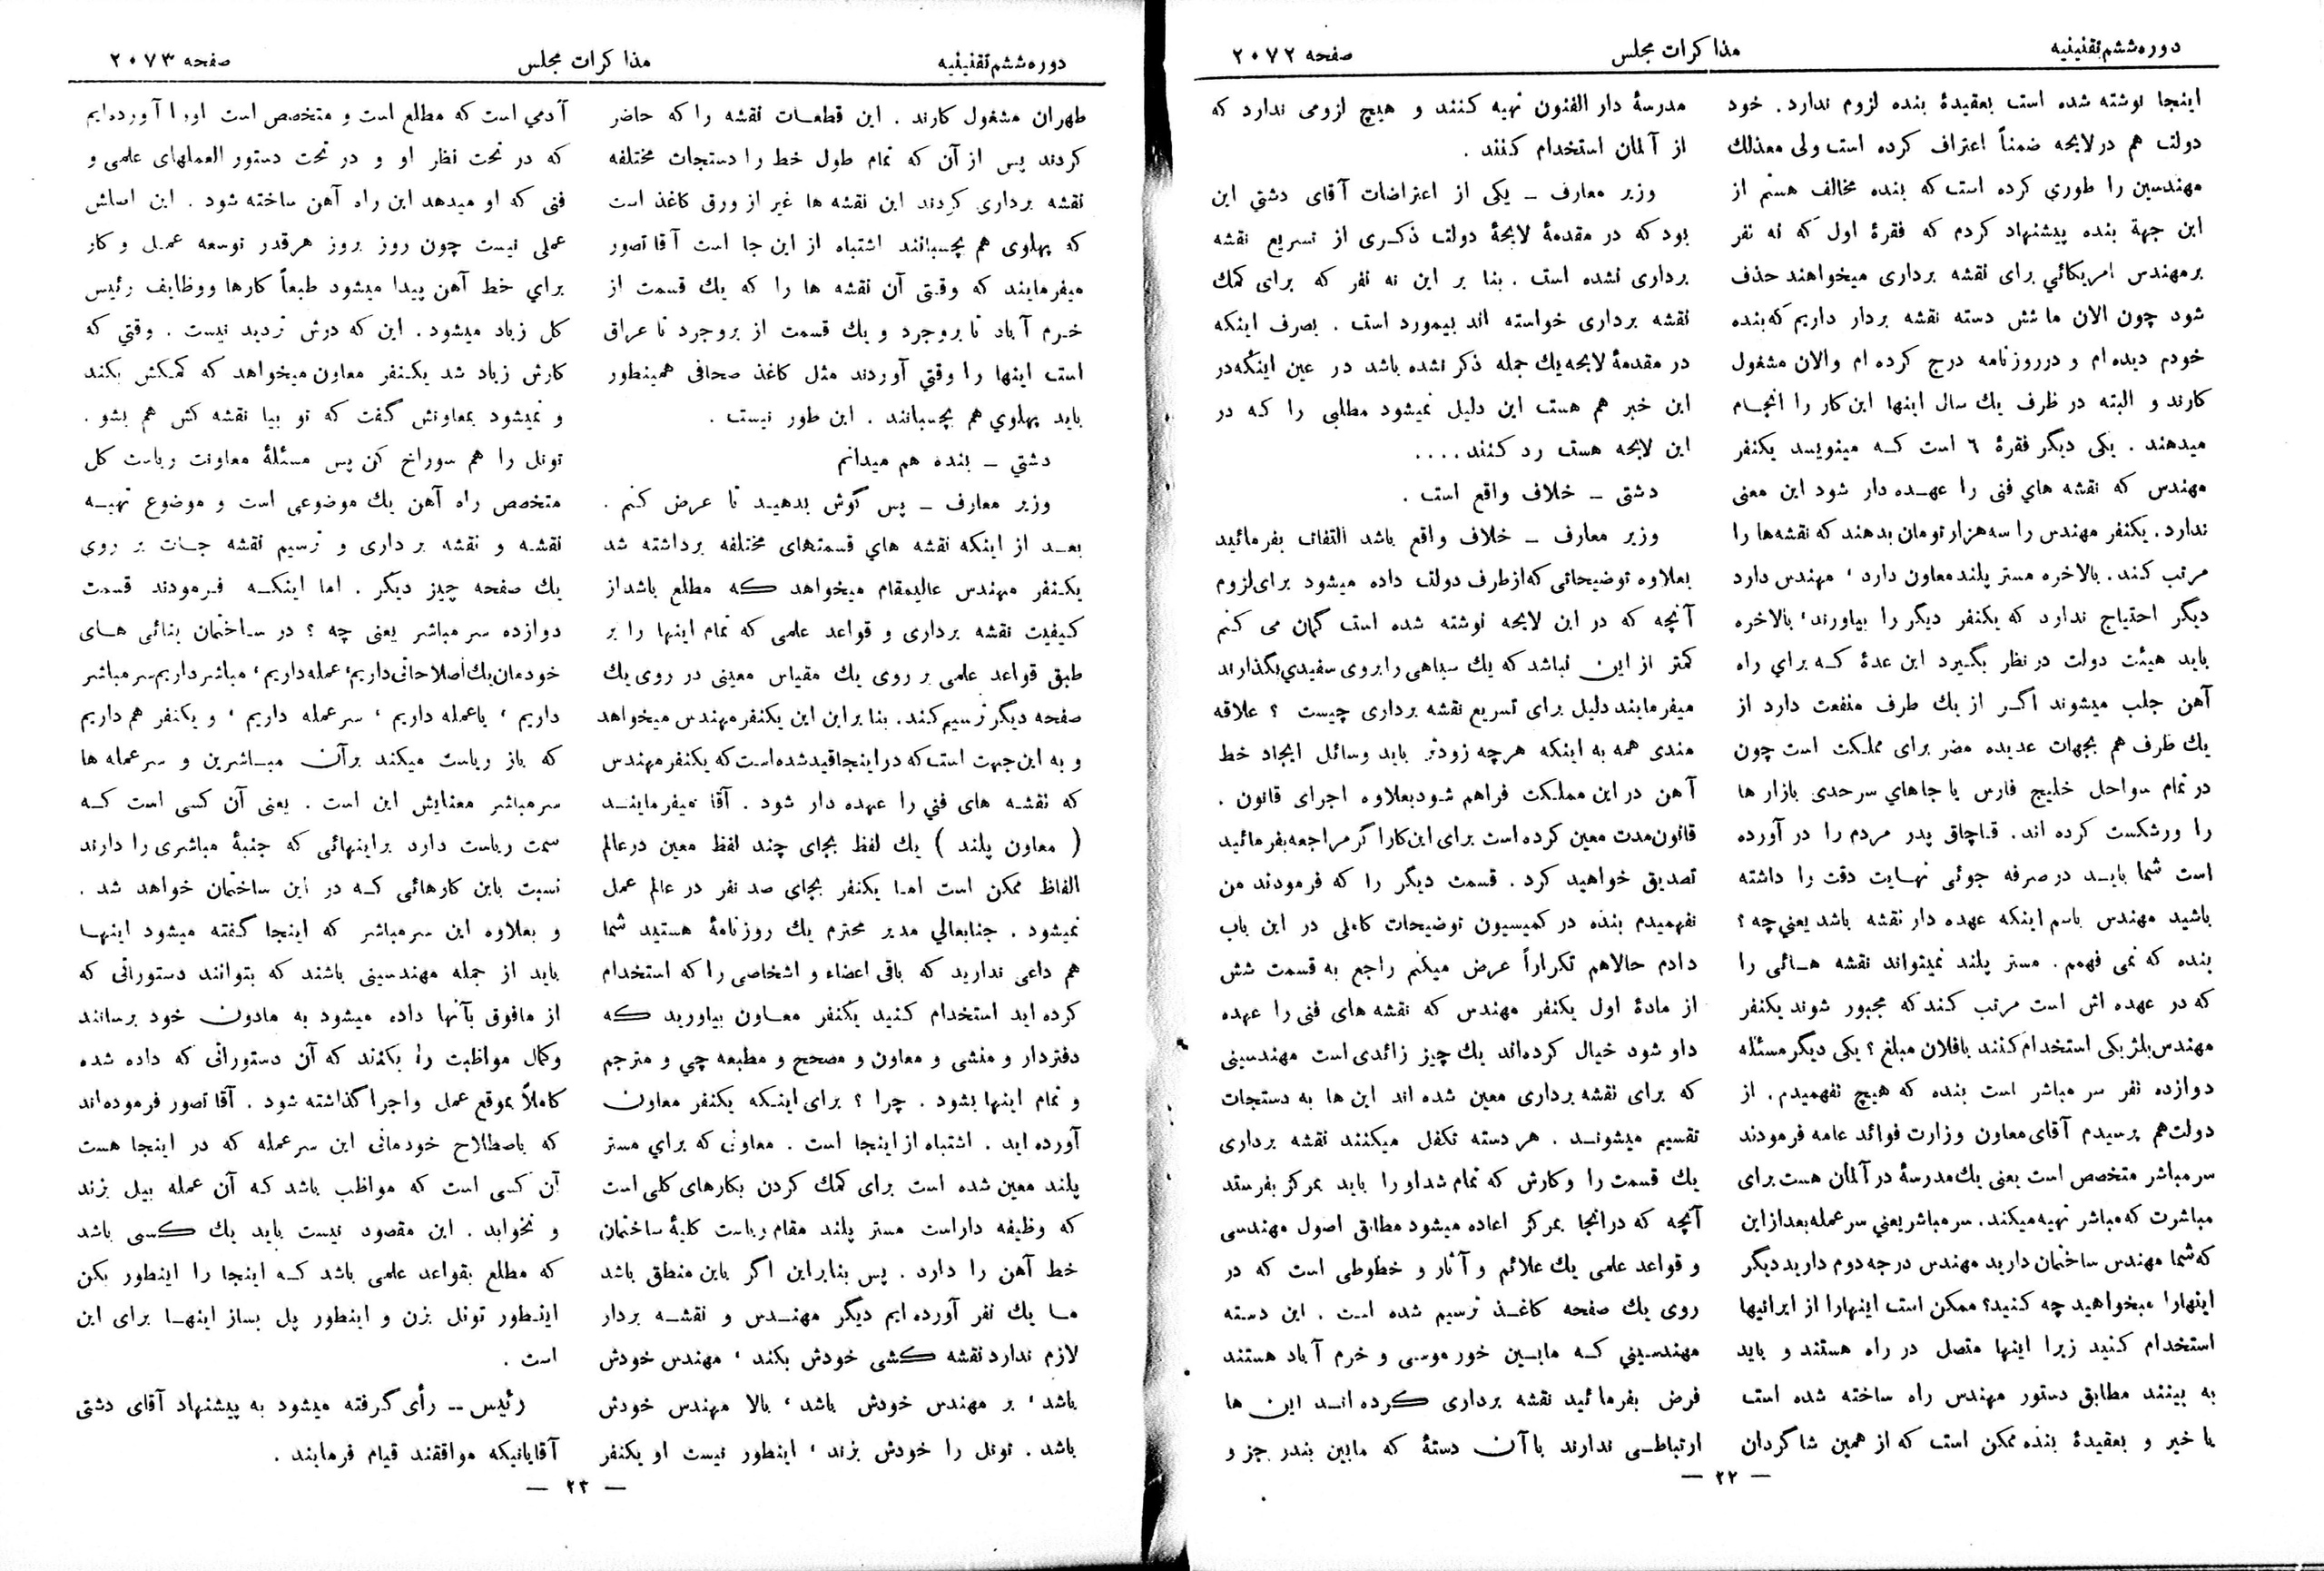 دوره ششم تقنینیه
مذاکرات مجلس
صفحه ۲۰۷۲
اینجا نوشته شده است بعقیدهٔ بنده لزوم ندارد . خود
دولت هم در لایحه ضمناً اعتراف کرده است ولی معذلك
مهندسین را طوری کرده است که بنده مخالف هستم از
این جهة بنده پیشنهاد کردم که فقرهٔ اول که نه نفر
برمهندس امریکائي برای نقشه برداری میخواهند حذف
شود چون الان ما شش دسته نقشه بردار داریم که بنده
خودم دیده ام و درروزنامه درج کرده ام والان مشغول
کارند و البته در ظرف یك سال اینها این کار را انجام
میدهند . یکی دیگر فقرهٔ ٦ است که مینویسد یکنفر
مهندس که نقشه هاي فنی را عهده دار شود این معنی
ندارد . یکنفر مهندس را سه هزار تومان بدهند که نقشه‌ها را
مرتب کند . بالاخره مستر پلند معاون دارد ، مهندس دارد
دیگر احتیاج ندارد که یکنفر دیگر را بیاورند ، بالاخره
باید هیئت دولت در نظر بگیرد این عدهٔ که براي راه
آهن جلب میشوند اگر از یك طرف منفعت دارد از
یك طرف هم بجهات عدیده مضر برای مملکت است چون
در تمام سواحل خلیج فارس یا جاهاي سرحدی بازار ها
را ورشکست کرده اند . قاچاق پدر مردم را در آورده
است شما باید در صرفه جوئی نهایت دقت را داشته
باشید مهندس باسم اینکه عهده دار نقشه باشد یعنی چه ؟
بنده که نمی فهمم . مستر پلند نمیتواند نقشه هائی را
که در عهده اش است مرتب کند که مجبور شوند یکنفر
مهندس بلژیکی استخدام کنند بافلان مبلغ ؟ یکی دیگر مسئله
دوازده نفر سر مباشر است بنده که هیچ نفهمیدم . از
دولت هم پرسیدم آقای معاون وزارت فوائد عامه فرمودند
سرمباشر متخصص است یعنی یك مدرسهٔ در آلمان هست برای
مباشرت که مباشر تهیه میکند . سرمباشر یعنی سرعمله بعد از این
که شما مهندس ساختمان دارید مهندس درجه دوم دارید دیگر
اینهارا میخواهید چه کنید؟ ممکن است اینهارا از ایرانیها
استخدام کنید زیرا اینها متصل در راه هستند و باید
به بینند مطابق دستور مهندس راه ساخته شده است
یا خیر و بعقیدهٔ بنده ممکن است که از همین شاگردان
مدرسهٔ دار الفنون تهیه کنند و هیچ لزومی ندارد که
از آلمان استخدام کنند .
وزیر معارف ــ یکی از اعتراضات آقای دشتي این
بود که در مقدمهٔ لایحهٔ دولت ذکری از تسریع نقشه
برداری نشده است . بنا بر این نه نفر که برای کمك
نقشه برداری خواسته اند بیمورد است . بصرف اینکه
در مقدمهٔ لایحه یك جمله ذکر نشده باشد در عین اینکه در
این خبر هم هست این دلیل نمیشود مطلبی را که در
این لایحه هست رد کنند ....
دشتی ــ خلاف واقع است .
وزیر معارف ــ خلاف واقع باشد التفات بفرمائید
بعلاوه توضیحاتی که از طرف دولت داده میشود برای لزوم
آنچه که در این لایحه نوشته شده است گمان می کنم
کمتر از این نباشد که یك سیاهی را بروی سفیدي بگذارند
میفرمایند دلیل برای تسریع نقشه برداری چیست ؟ علاقه
مندی همه به اینکه هرچه زودتر باید وسائل ایجاد خط
آهن در این مملکت فراهم شود بعلاوه اجرای قانون .
قانون مدت معین کرده است برای این کار اگر مراجعه بفرمائید
تصدیق خواهید کرد . قسمت دیگر را که فرمودند من
نفهمیدم بنده در کمیسیون توضیحات کاملی در این باب
دادم حالاهم تکراراً عرض میکنم راجع به قسمت شش
از مادهٔ اول یکنفر مهندس که نقشه های فنی را عهده
داو شود خیال کرده‌اند یك چیز زائدی است مهندسینی
که برای نقشه برداری معین شده اند این ها به دستجات
تقسیم میشوند . هر دسته تکفل میکنند نقشه برداری
یك قسمت را وکارش که تمام شد او را باید بمرکز بفرستد
آنچه که درانجا بمرکز اعاده میشود مطابق اصول مهندسی
و قواعد علمی یك علائم و آثار و خطوطی است که در
روی یك صفحه کاغذ ترسیم شده است . این دسته
مهندسیني که مابین خور موسی و خرم آباد هستند
فرض بفرمائید نقشه برداری کرده اند این ها
ارتباطی ندارند با آن دستهٔ که مابین بندر جز و
— ۲۲ —
دوره ششم تقنینیه
مذاکرات مجلس
صفحه ۲۰۷۳
طهران مشغول کارند . این قطعات نقشه را که حاضر
کردند پس از آن که تمام طول خط را دستجات مختلفه
نقشه برداری کردند این نقشه ها غیر از ورق کاغذ است
که پهلوی هم بچسبانند اشتباه از این جا است آقا تصور
میفرمایند که وقتی آن نقشه ها را که یك قسمت از
خرم آباد تا بروجرد و یك قسمت از بروجرد تا عراق
است اینها را وقتي آوردند مثل کاغذ صحافی همینطور
باید پهلوي هم بچسبانند . این طور نیست .
دشتي ــ بنده هم میدانم
وزیر معارف ــ پس گوش بدهید تا عرض کنم .
بعد از اینکه نقشه هاي قسمتهای مختلفه برداشته شد
یکنفر مهندس عالیمقام میخواهد که مطلع باشد از
کیفیت نقشه برداری و قواعد علمی که تمام اینها را بر
طبق قواعد علمی بر روی یك مقیاس معینی در روی یك
صفحه دیگر ترسیم کند . بنا براین این یکنفر مهندس میخواهد
و به این جهت است که در اینجا قید شده است که یکنفر مهندس
که نقشه های فني را عهده دار شود . آقا میفرمایند
( معاون پلند ) یك لفظ بجای چند لفظ معین درعالم
الفاظ ممکن است اما یکنفر بجای صد نفر در عالم عمل
نمیشود . جنابعالي مدیر محترم یك روزنامهٔ هستید شما
هم داعی ندارید که باقی اعضاء و اشخاصی را که استخدام
کرده اید استخدام کنید یکنفر معاون بیاورید که
دفتردار و منشی و معاون و مصحح و مطبعه چي و مترجم
و تمام اینها بشود . چرا ؟ برای اینکه یکنفر معاون
آورده اید . اشتباه از اینجا است . معاونی که براي مستر
پلند معین شده است برای کمك کردن بکارهای کلی است
که وظیفه داراست مستر پلند مقام ریاست کلیهٔ ساختمان
خط آهن را دارد . پس بنابراین اگر باین منطق باشد
ما یك نفر آورده ایم دیگر مهندس و نقشه بردار
لازم ندارد نقشه کشی خودش بکند ، مهندس خودش
باشد ، بر مهندس خودش باشد ، بالا مهندس خودش
باشد . تونل را خودش بزند ، اینطور نیست او یکنفر
آدمي است که مطلع است و متخصص است اورا آورده‌ایم
که در تحت نظر او و در تحت دستور العملهای علمی و
فنی که او میدهد این راه آهن ساخته شود . این اساش
عملی نیست چون روز بروز هرقدر توسعه عمل و کار
براي خط آهن پیدا میشود طبعاً کارها ووظایف رئیس
کل زیاد میشود . این که درش تردید نیست . وقتي که
کارش زیاد شد یکنفر معاون میخواهد که کمکش بکند
و نمیشود بمعاونش گفت که تو بیا نقشه کش هم بشو .
تونل را هم سوراخ کن پس مسئلهٔ معاونت ریاست کل
متخصص راه آهن یك موضوعی است و موضوع تهیه
نقشه و نقشه برداری و ترسیم نقشه جات بر روی
یك صفحه چیز دیگر . اما اینکه فرمودند قسمت
دوازده سر مباشر یعنی چه ؟ در ساختمان بنائی های
خودمان یك اصلاحاتی داریم ، عمله داریم ، مباشر داریم سر مباشر
داریم ، یا عمله داریم ، سر عمله داریم ، و یکنفر هم داریم
که باز ریاست میکند برآن مباشرین و سر عمله ها
سرمباشر معنایش این است . یعنی آن کسی است که
سمت ریاست دارد براینهائی که جنبهٔ مباشری را دارند
نسبت باین کارهائی که در این ساختمان خواهد شد .
و بعلاوه این سرمباشر که اینجا گفته میشود اینها
باید از جمله مهندسینی باشند که بتوانند دستوراتی که
از مافوق بآنها داده میشود به مادون خود برسانند
وکمال مواظبت را بکنند که آن دستوراتی که داده شده
کاملاً بموقع عمل واجرا گذاشته شود . آقا تصور فرموده‌اند
که باصطلاح خودمانی این سرعمله که در اینجا هست
آن کسی است که مواظب باشد که آن عمله بیل بزند
و نخوابد . این مقصود نیست باید یك کسی باشد
که مطلع بقواعد علمی باشد که اینجا را اینطور بکن
اینطور تونل بزن و اینطور پل بساز اینها برای این
است .
رئیس ــ رأی گرفته میشود به پیشنهاد آقای دشتی
آقایانیکه موافقند قیام فرمایند .
— ۲۳ —